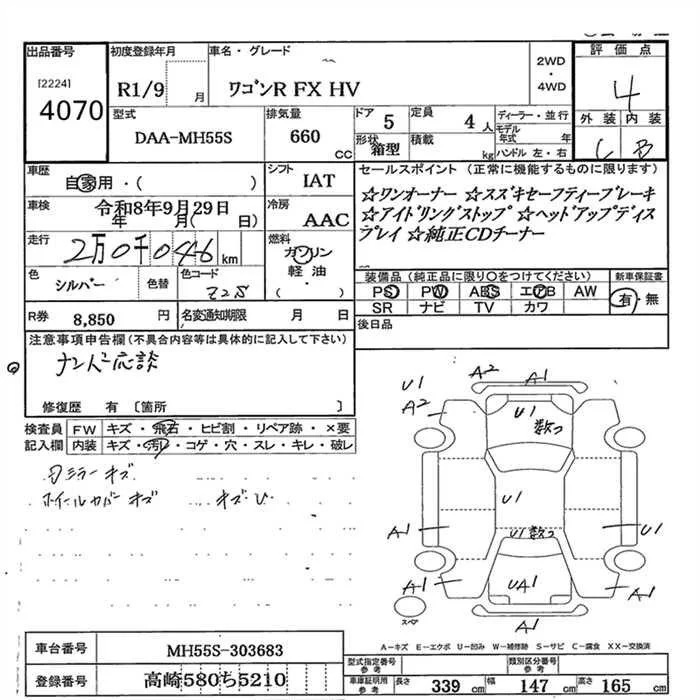 出品番号 初度登録年月 車名・グレード 2WD・4WD 評価点
[2224] 4070 R1/9 月 ワゴンR FX HV 4
型式 排気量 ドア 定員 ディーラー・並行 外装 内装
DAA-MH55S 660 CC 5 4人 モデル年式 年 C B
形状 箱型 積載 kg ハンドル 左・右
車歴 自家用・( ) シフト IAT セールスポイント (正常に機能するものに限ります)
車検 令和8年9月29日 冷房 AAC ☆ワンオーナー ☆スズキセーフティーブレーキ
年 月( 日) ☆アイドリングストップ ☆ヘッドアップディス
走行 2万0千046km 燃料 ガソリン プレイ ☆純正CDチーナー
軽油・( )
色 シルバー 色替 色コード Z2S 装備品(純正品に限り〇をつけてください) 新車保証書
PS PW ABS エアB AW 有・無
SR ナビ TV カワ
R券 8,850円 名変通知期限 月 日 後日品
注意事項申告欄(不具合内容等は具体的に記入して下さい)
修復歴 有 〔箇所 〕
検査員記入欄 FW キズ・飛石・ヒビ割・リペア跡・×要
内装 キズ・汚レ・コゲ・穴・スレ・キレ・破レ
ミラーキズ
ホイールカバーキズ
A2 A1
U1 A2
U1 数つ
U1
A1 U1
U1 数つ
A1 UA1 A1
A1
スペア
A-キズ E-エクボ U-凹み W-補修跡 S-サビ C-腐食 XX-交換済
車台番号 MH55S-303683
型式指定番号 参考 類別区分番号 参考
登録番号 高崎580ち5210
車庫証明用 参考 長さ 339cm 幅 147cm 高さ 165cm